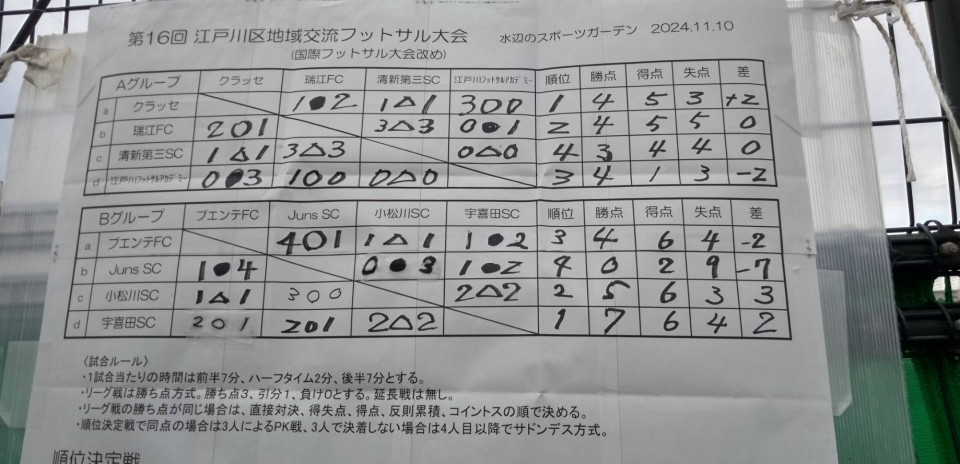 第16回 江戸川区地域交流フットサル大会 水辺のスポーツガーデン 2024.11.10
(国際フットサル大会改め)
Aグループ クラッセ 瑞江FC 清新第三SC 江戸川フットサルアカデミー 順位 勝点 得点 失点 差
a クラッセ 1●2 1△1 3○0 1 4 5 3 +2
b 瑞江FC 2○1 3△3 0●1 2 4 5 5 0
c 清新第三SC 1△1 3△3 0△0 4 3 4 4 0
d 江戸川フットサルアカデミー 0●3 1○0 0△0 3 4 1 3 -2
Bグループ プエンテFC Juns SC 小松川SC 宇喜田SC 順位 勝点 得点 失点 差
a プエンテFC 4○1 1△1 1●2 3 4 6 4 -2
b Juns SC 1●4 0●3 1●2 4 0 2 9 -7
c 小松川SC 1△1 3○0 2△2 2 5 6 3 3
d 宇喜田SC 2○1 2○1 2△2 1 7 6 4 2
〈試合ルール〉
・1試合当たりの時間は前半7分、ハーフタイム2分、後半7分とする。
・リーグ戦は勝ち点方式。勝ち点3、引分1、負け0とする。延長戦は無し。
・リーグ戦の勝ち点が同じ場合は、直接対決、得失点、得点、反則累積、コイントスの順で決める。
・順位決定戦で同点の場合は3人によるPK戦、3人で決着しない場合は4人目以降でサドンデス方式。
順位決定戦